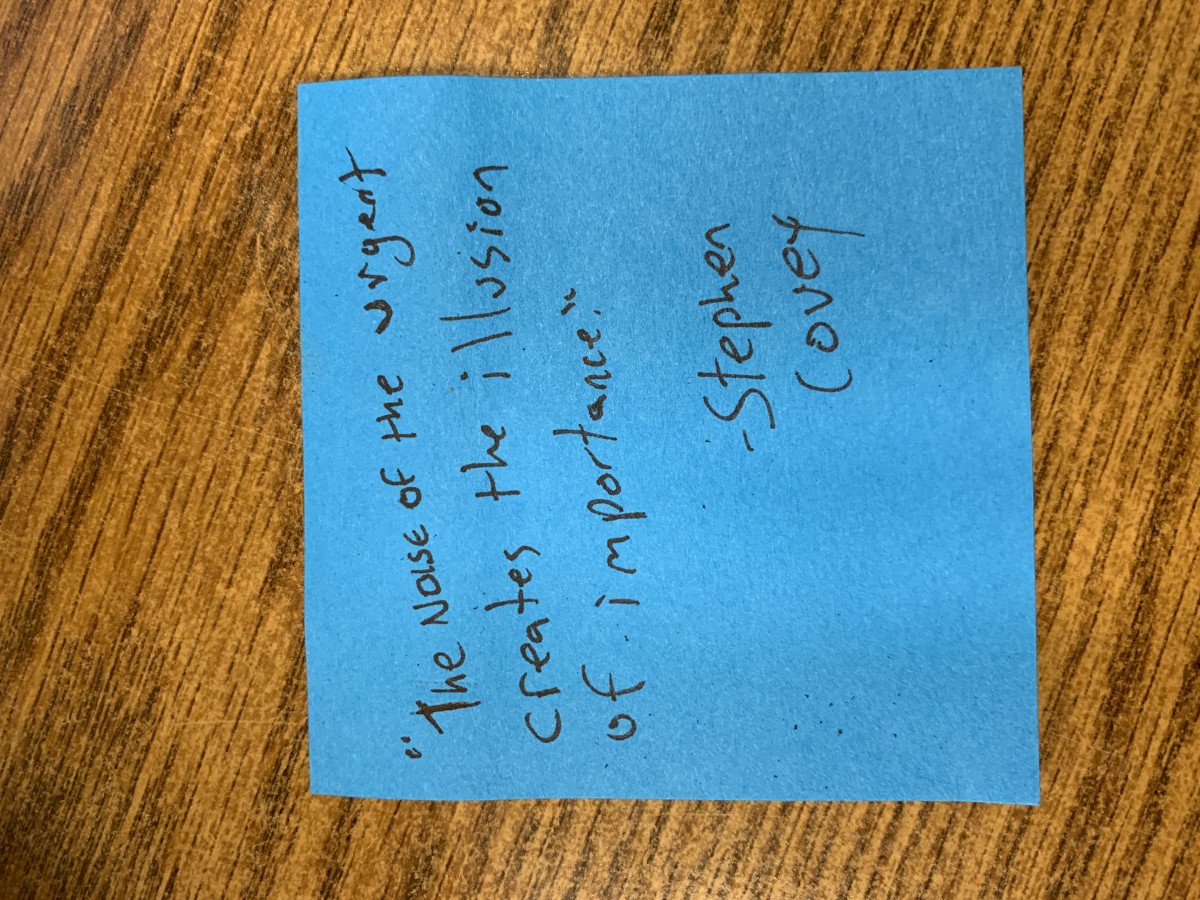 "The NOISE of the urgent
creates the illusion
of importance."
-Stephen
Covey